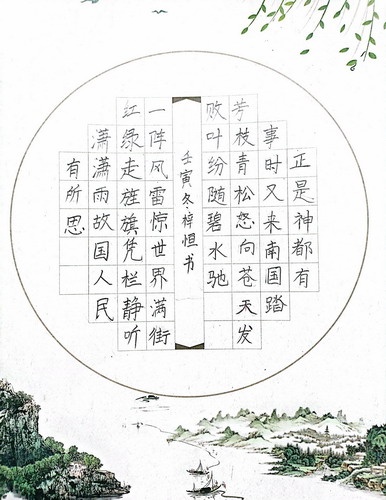 正是神都有
事时又来南国踏
芳枝青松怒向苍天发
败叶纷随碧水驰
壬寅冬梓恒书
一阵风雷惊世界满街
红绿走旌旗凭栏静听
潇潇雨故国人民
有所思